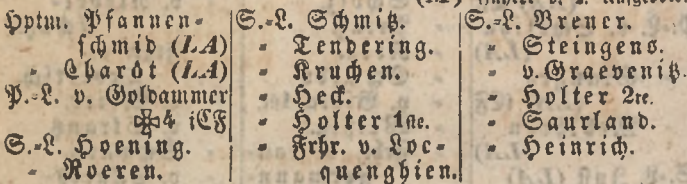 Hptm. Pfannen-
schmid (LA)
- Ehardt (LA)
P.-L. v. Goldammer
✠4 iCF
S.-L. Hoening.
- Roeren.
S.-L. Schmitz.
- Tendering.
- Kruchen.
- Heck.
- Holter 1ste.
- Frhr. v. Loc-
quenghien.
S.-L. Breuer.
- Steingens.
- v. Graevenitz.
- Holter 2te.
- Saurland.
- Heinrich.